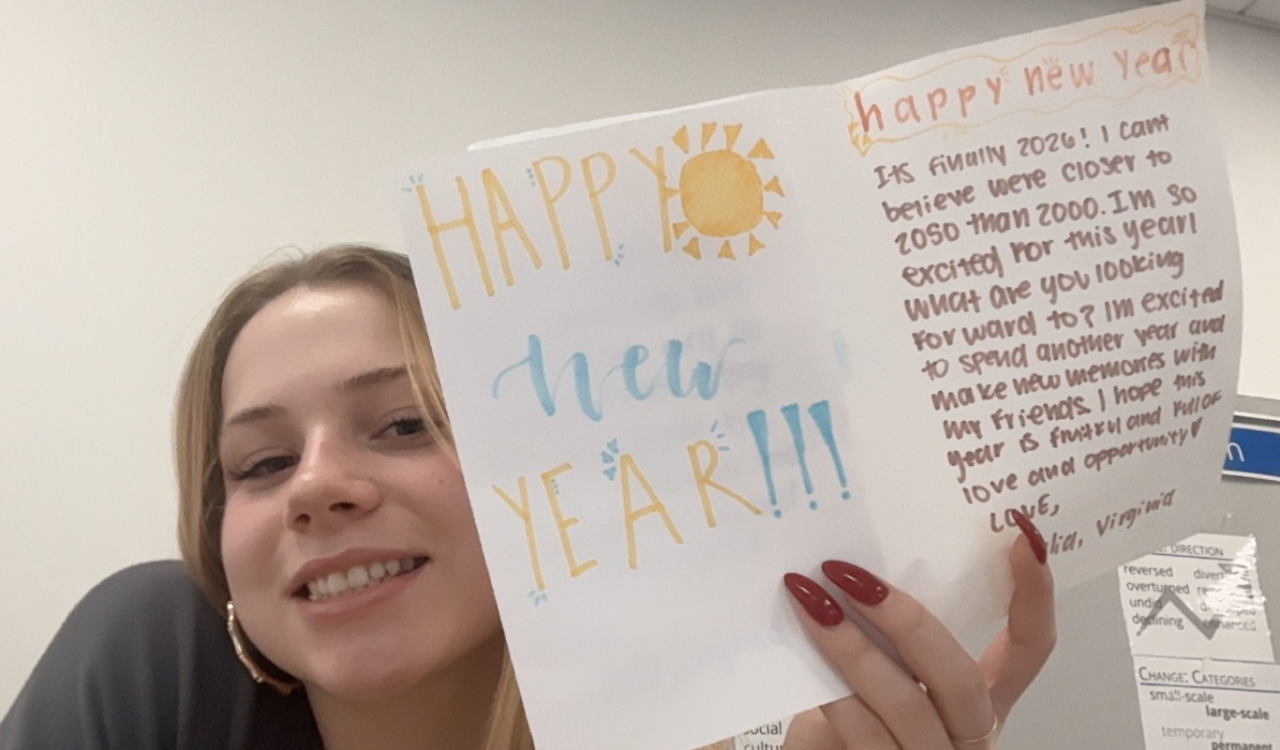 HAPPY
new
YEAR!!!
happy new year
Its finally 2026! I cant
believe were closer to
2050 than 2000. Im so
excited for this year!
What are you looking
forward to? Im excited
to spend another year and
make new memories with
my friends. I hope this
year is fruitful and full of
love and opportunity
LOVE,
Virginia
n
DIRECTION
reversed
overturned
undid
declining enhanced
CHANGE: CATEGORIES
small-scale
large-scale
temporary
permanent